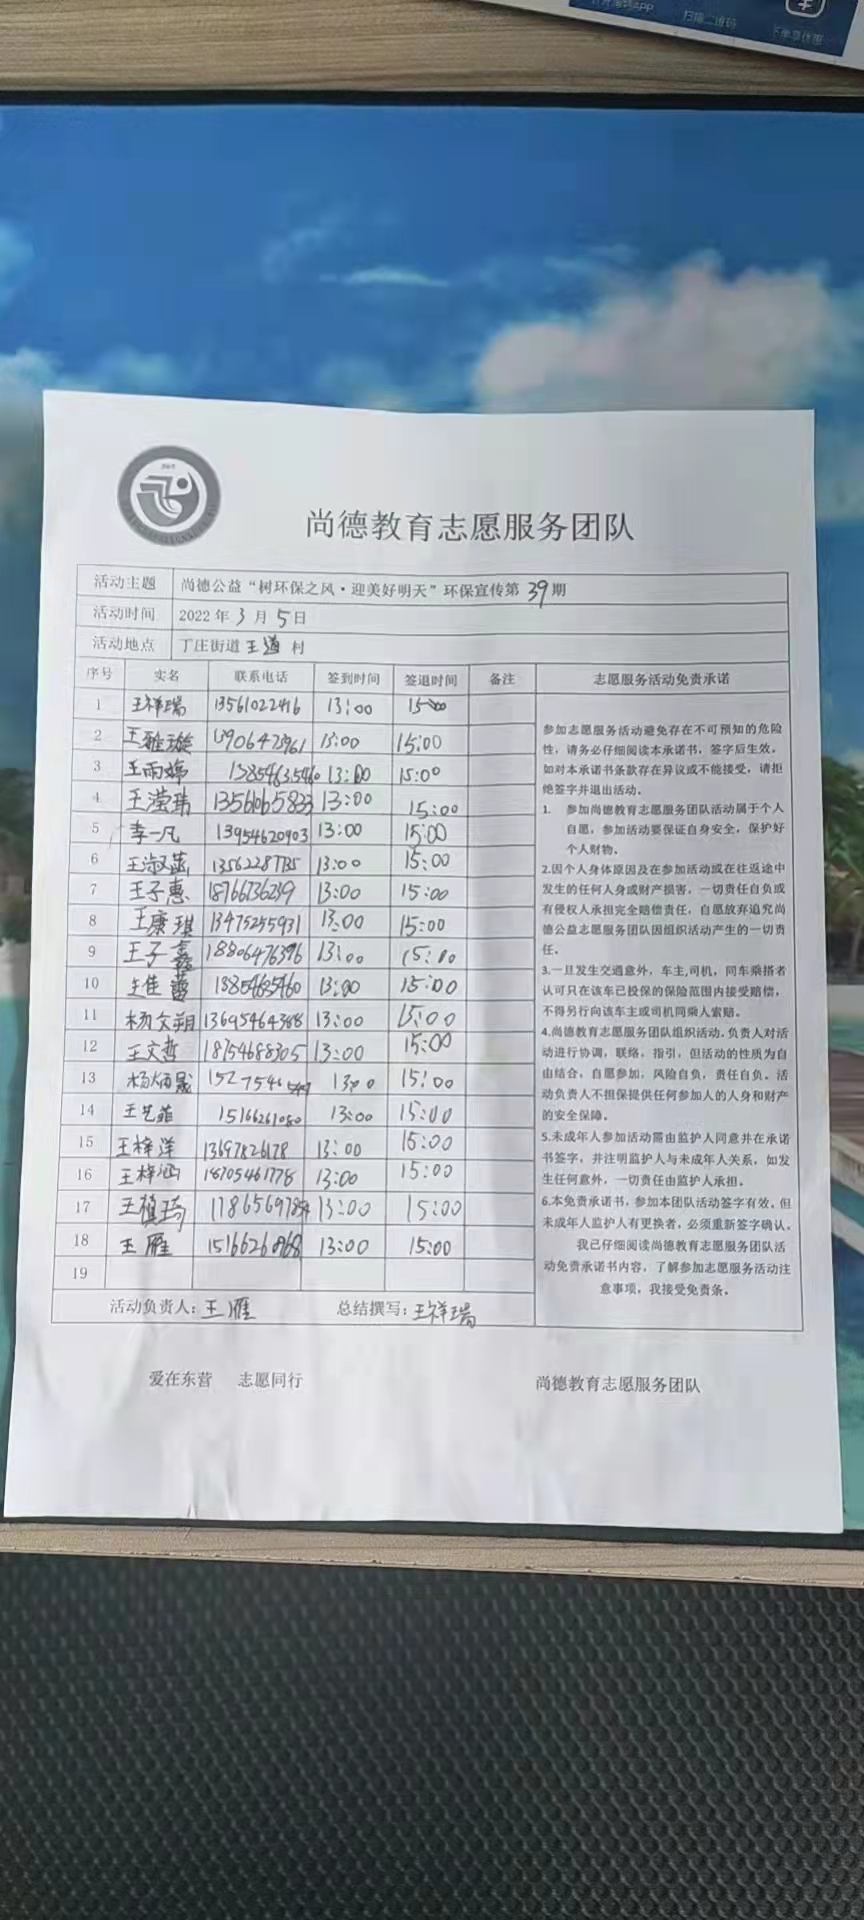 扫描二维码
下单享优惠
尚德教育志愿服务团队
活动主题 尚德公益“树环保之风·迎美好明天”环保宣传第39期
活动时间 2022年3月5日
活动地点 丁庄街道王道村
序号 实名 联系电话 签到时间 签退时间 备注 志愿服务活动免责承诺
1 王祥瑞 13561022416 13:00 15:00
2 王雅璇 13:00 15:00
3 王雨婷 13:00 15:00
4 王滢玮 13561065833 13:00 15:00
5 李一凡 13954620903 13:00 15:00
6 王淑菡 13562287735 13:00 15:00
7 王子惠 18766736239 13:00 15:00
8 王康琪 13475255931 13:00 15:00
9 王子鑫 18806476396 13:00 15:00
10 王佳蕾 18854635460 13:00 15:00
11 杨文翔 13695464388 13:00 15:00
12 王文哲 18754688305 13:00 15:00
13 杨炳晟 13:00 15:00
14 王艺菲 15166261080 13:00 15:00
15 王梓洋 13697826178 13:00 15:00
16 王梓涵 18705461778 13:00 15:00
17 王植琦 13:00 15:00
18 王雁 13:00 15:00
19
参加志愿服务活动避免存在不可预知的危险
性，请务必仔细阅读本承诺书，签字后生效。
如对本承诺书条款存在异议或不能接受，请拒
绝签字并退出活动。
1. 参加尚德教育志愿服务团队活动属于个人
自愿，参加活动要保证自身安全，保护好
个人财物。
2.因个人身体原因及在参加活动或在往返途中
发生的任何人身或财产损害，一切责任自负或
有侵权人承担完全赔偿责任，自愿放弃追究尚
德公益志愿服务团队因组织活动产生的一切责
任。
3.一旦发生交通意外，车主,司机，同车乘搭者
认可只在该车已投保的保险范围内接受赔偿，
不得另行向该车主或司机同乘人索赔。
4.尚德教育志愿服务团队组织活动，负责人对活
动进行协调，联络，指引，但活动的性质为自
由结合，自愿参加，风险自负，责任自负。活
动负责人不担保提供任何参加人的人身和财产
的安全保障。
5.未成年人参加活动需由监护人同意并在承诺
书签字，并注明监护人与未成年人关系，如发
生任何意外，一切责任由监护人承担。
6.本免责承诺书，参加本团队活动签字有效，但
未成年人监护人有更换者，必须重新签字确认。
我已仔细阅读尚德教育志愿服务团队活
动免责承诺书内容，了解参加志愿服务活动注
意事项，我接受免责条。
活动负责人：王雁 总结撰写：王祥瑞
爱在东营 志愿同行 尚德教育志愿服务团队